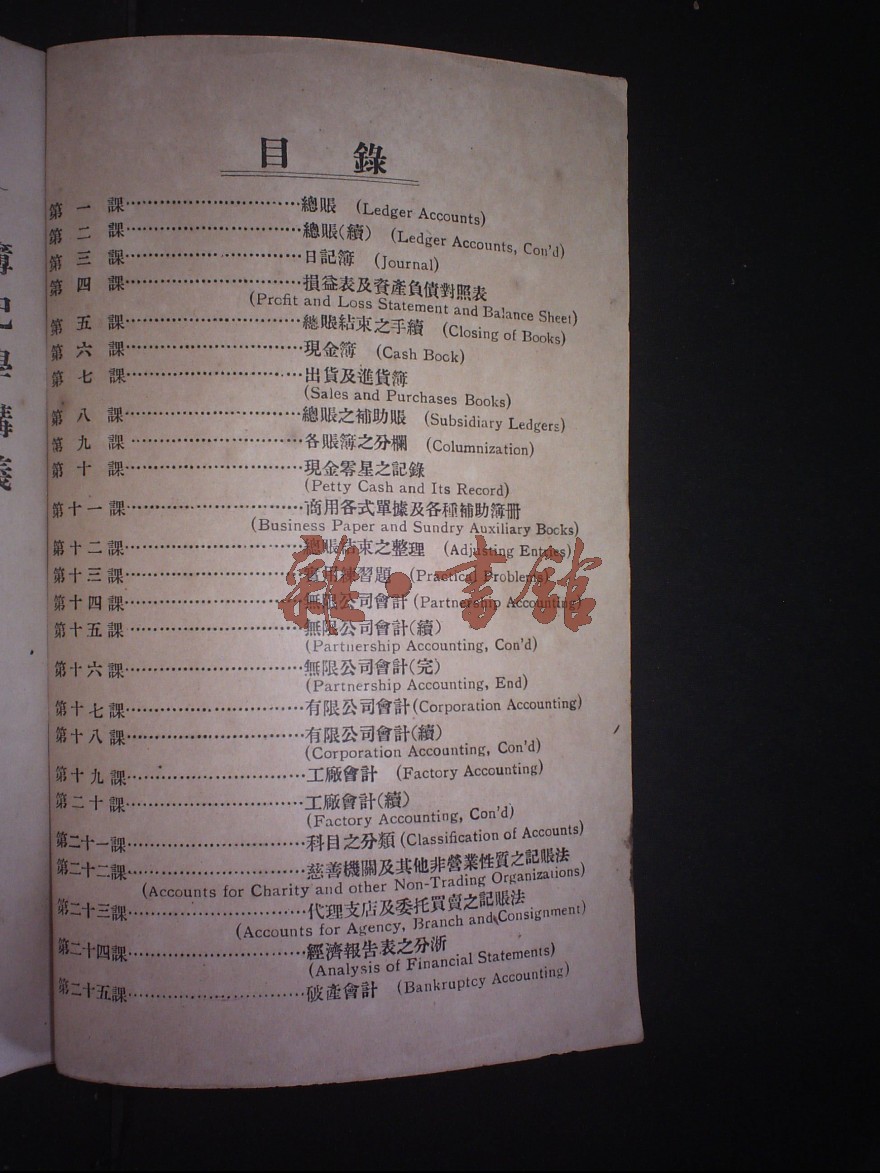 目錄
第一課……………………總賬 (Ledger Accounts)
第二課……………………總賬(續) (Ledger Accounts, Con'd)
第三課……………………日記簿 (Journal)
第四課……………………損益表及資產負債對照表
(Profit and Loss Statement and Balance Sheet)
第五課……………………總賬結束之手續 (Closing of Books)
第六課……………………現金簿 (Cash Book)
第七課……………………出貨及進貨簿
(Sales and Purchases Books)
第八課……………………總賬之補助賬 (Subsidiary Ledgers)
第九課……………………各賬簿之分欄 (Columnization)
第十課……………………現金零星之記錄
(Petty Cash and Its Record)
第十一課……………………商用各式單據及各種補助簿册
(Business Paper and Sundry Auxiliary Books)
第十二課……………………總賬結束之整理 (Adjusting Entries)
第十三課……………………實用練習題 (Practical Problems)
第十四課……………………無限公司會計 (Partnership Accounting)
第十五課……………………無限公司會計(續)
(Partnership Accounting, Con'd)
第十六課……………………無限公司會計(完)
(Partnership Accounting, End)
第十七課……………………有限公司會計 (Corporation Accounting)
第十八課……………………有限公司會計(續)
(Corporation Accounting, Con'd)
第十九課……………………工廠會計 (Factory Accounting)
第二十課……………………工廠會計(續)
(Factory Accounting, Con'd)
第二十一課……………………科目之分類 (Classification of Accounts)
第二十二課……………………慈善機關及其他非營業性質之記賬法
(Accounts for Charity and other Non-Trading Organizations)
第二十三課……………………代理支店及委托買賣之記賬法
(Accounts for Agency, Branch and Consignment)
第二十四課……………………經濟報告表之分淅
(Analysis of Financial Statements)
第二十五課……………………破產會計 (Bankruptcy Accounting)
簿記學講義
雜·書館